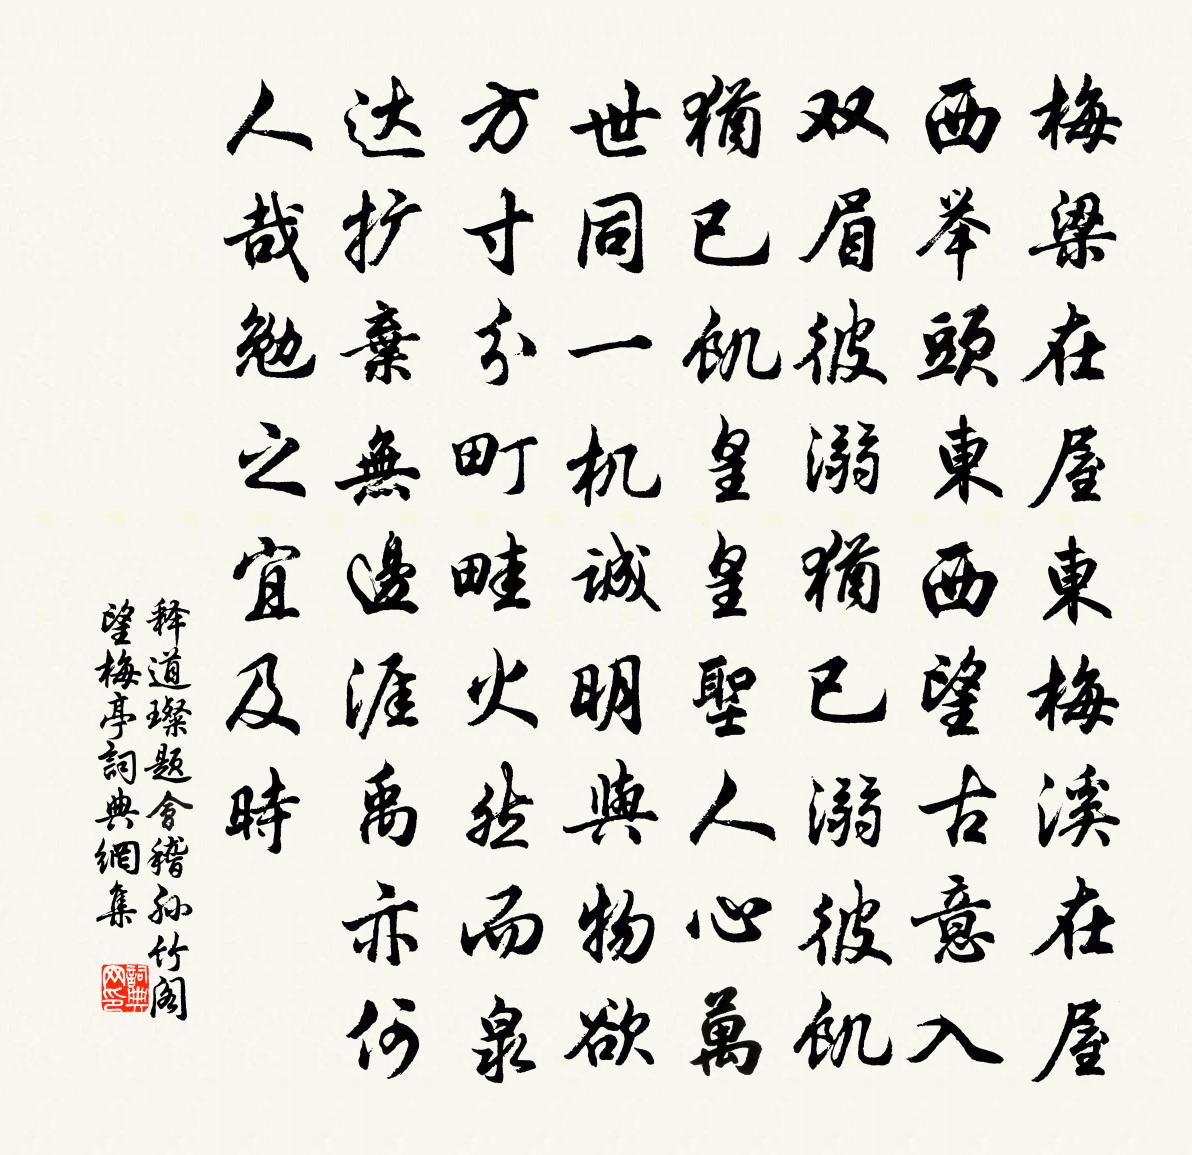 梅梁在屋東梅溪在屋
西举頭東西望古意入
双眉彼溺猶已溺彼飢
猶已飢皇皇聖人心萬
世同一机誠明與物欲
方寸分町畦火然而泉
达扩棄無邊涯禹亦何
人哉勉之宜及時
释道璨题會稽孙竹阁
望梅亭詞典網集
詞典网印